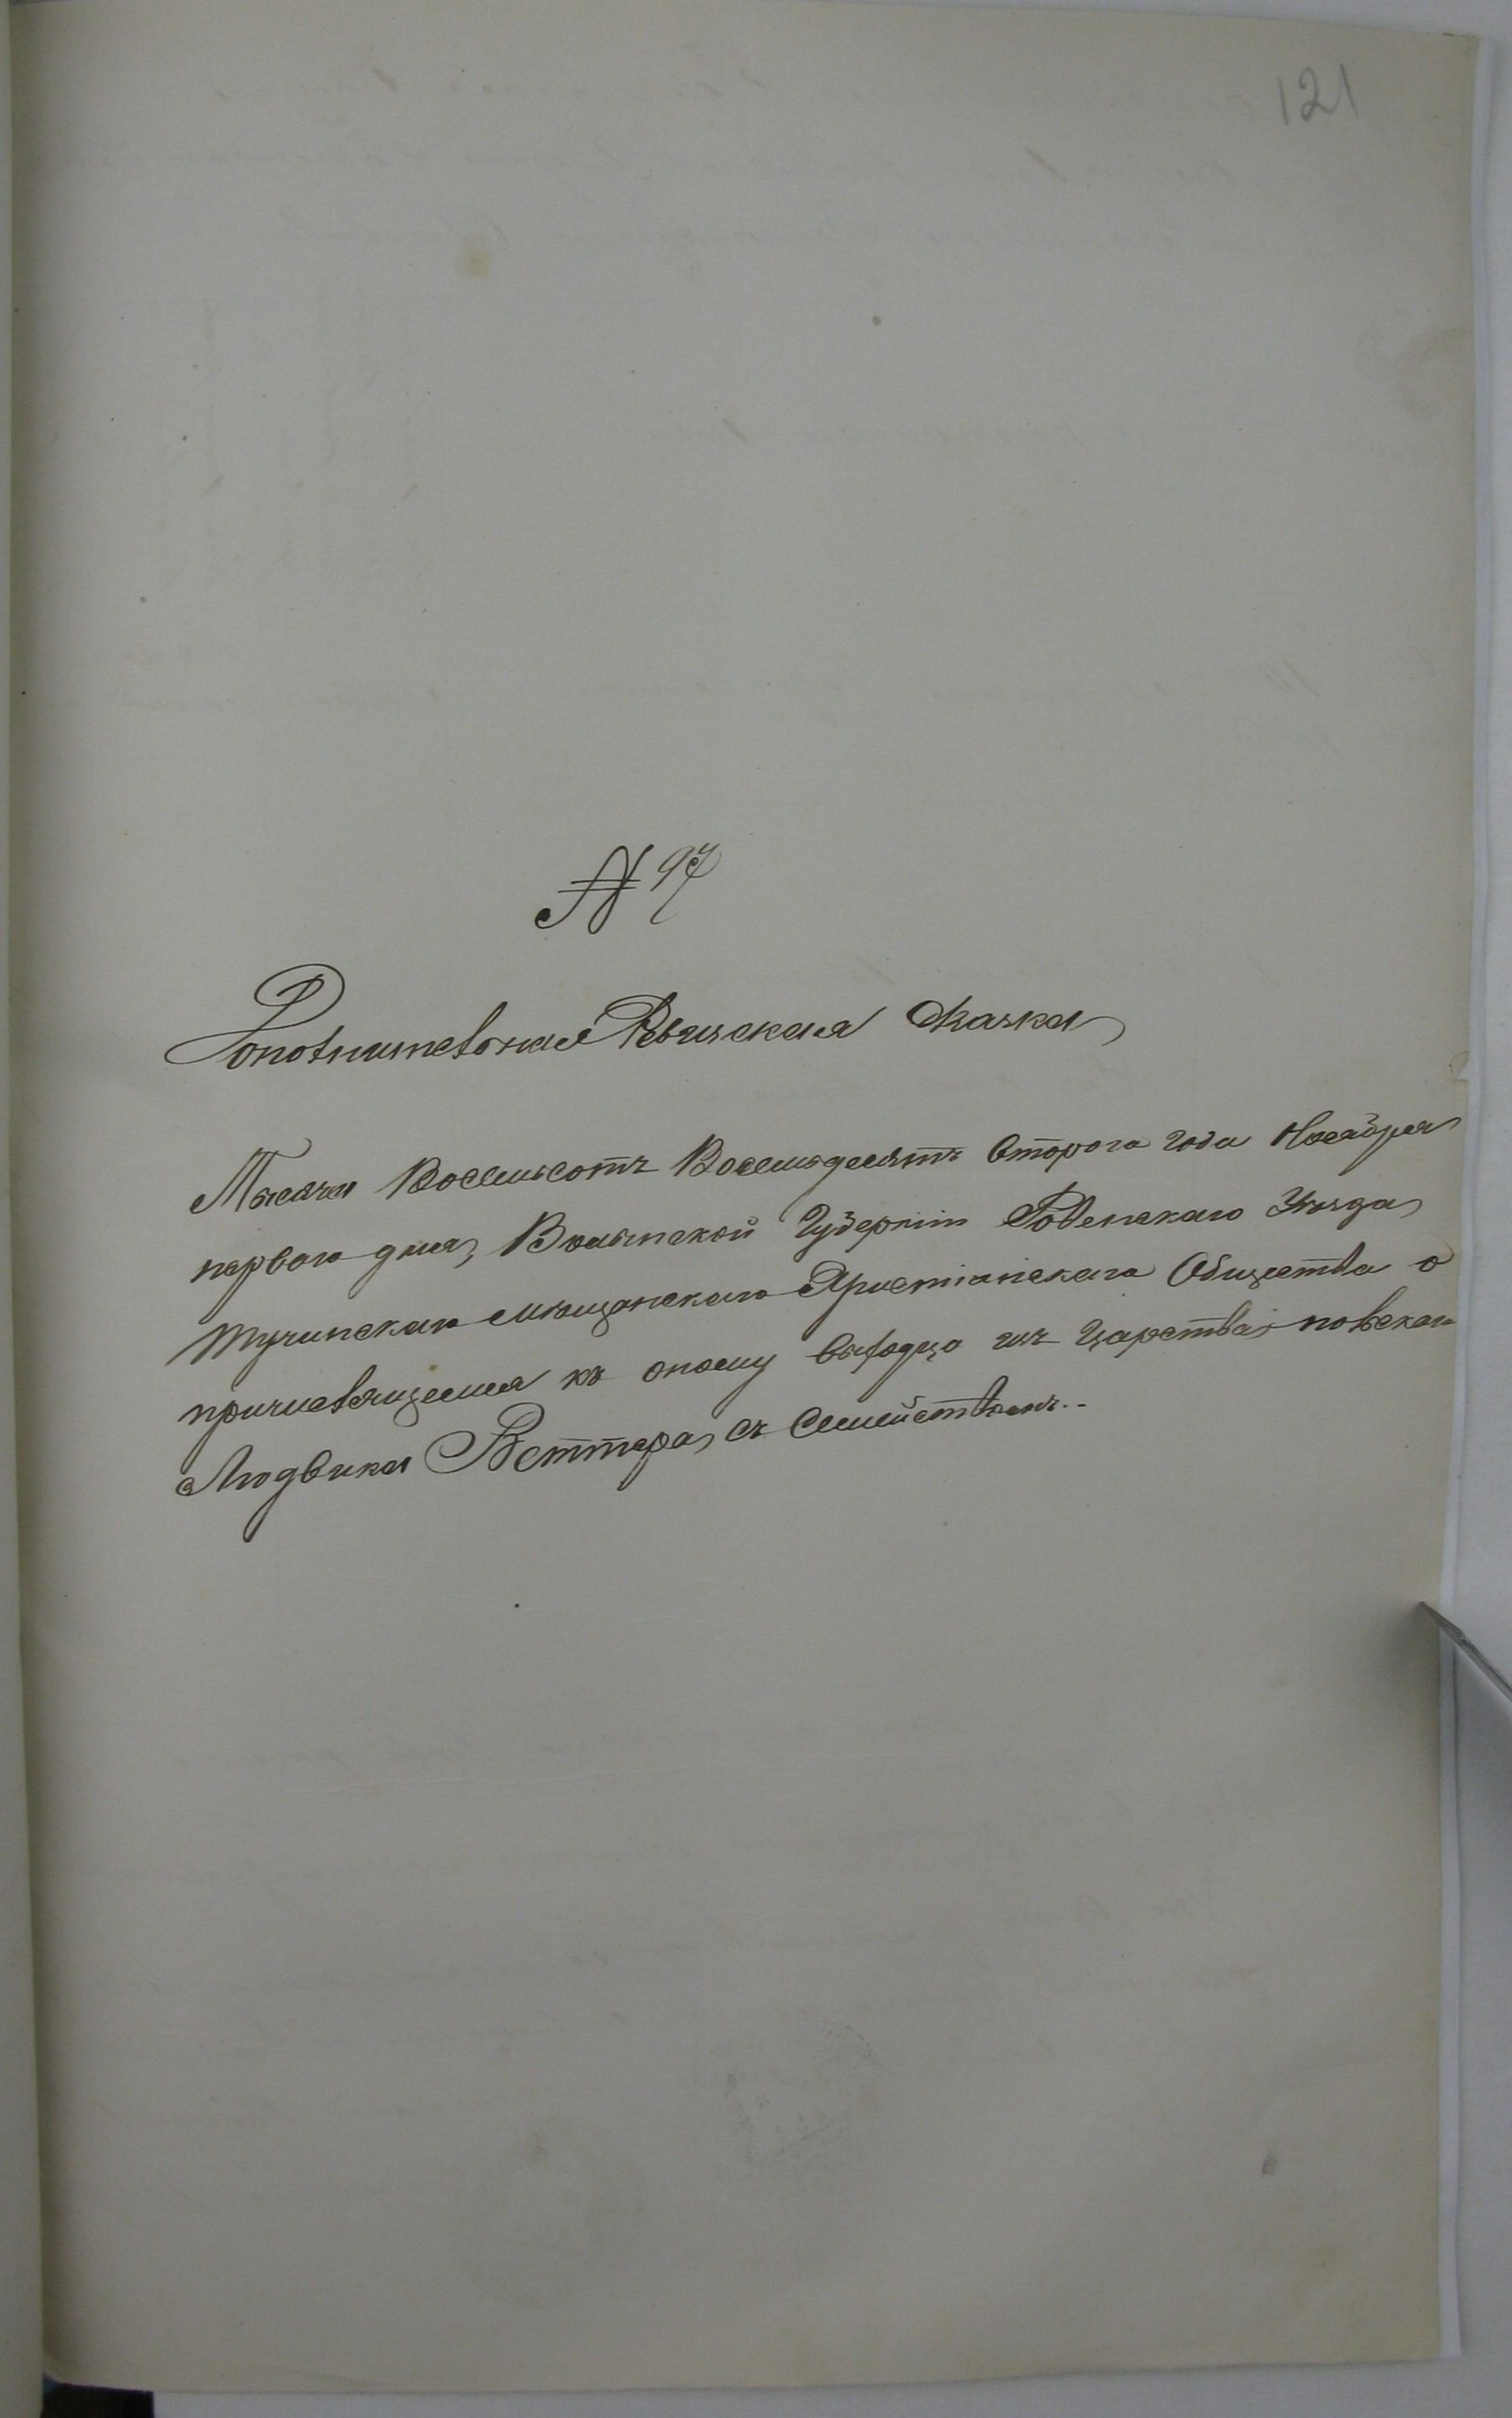 121
№ 97
Дополнительная Ревизская Сказка
Тысяча Восемьсотъ Восемьдесятъ Втораго года Ноября
перваго дня, Волынской Губерніи Ровенскаго Уѣзда
Тучинскаго мѣщанскаго Христіанскаго Общества о
причислящемся къ оному выходца изъ Царства польскаго
Людвика Веттера съ Семействомъ..